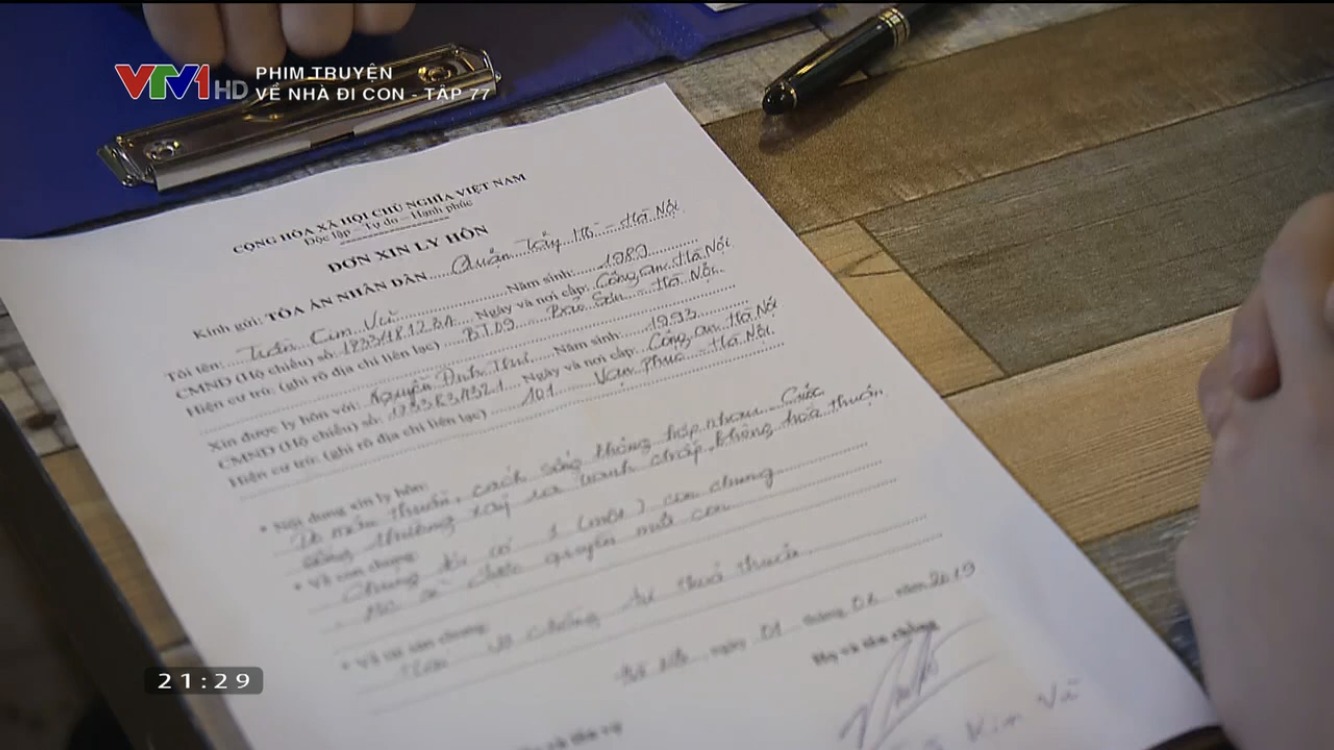 VTV1 HD
PHIM TRUYỆN
VỀ NHÀ ĐI CON - TẬP 77
CỘNG HÒA XÃ HỘI CHỦ NGHĨA VIỆT NAM
Độc lập – Tự do – Hạnh phúc
ĐƠN XIN LY HÔN
Kính gửi: TÒA ÁN NHÂN DÂN Quận Tây Hồ - Hà Nội
Tôi tên: Trần Kim Vũ Năm sinh: 1989
CMND (Hộ chiếu) số: Ngày và nơi cấp: Công an Hà Nội
Hiện cư trú: (ghi rõ địa chỉ liên lạc) BT09 Hà Nội
Xin được ly hôn với: Nguyễn Anh Thư Năm sinh: 1993
CMND (Hộ chiếu) số: Ngày và nơi cấp: Công an Hà Nội
Hiện cư trú: (ghi rõ địa chỉ liên lạc) 101 Vạn Phúc - Hà Nội
* Nội dung xin ly hôn:
mâu thuẫn, cách sống không hợp nhau. Cuộc
sống thường xảy ra tranh chấp, không hòa thuận
* Về con chung:
Chúng tôi có 1 (một) con chung
được quyền nuôi con
* Về tài sản chung:
vợ chồng tự thoả thuận
ngày 01 tháng năm 2019
Họ và tên chồng
Họ và tên vợ
Kim Vũ
21:29